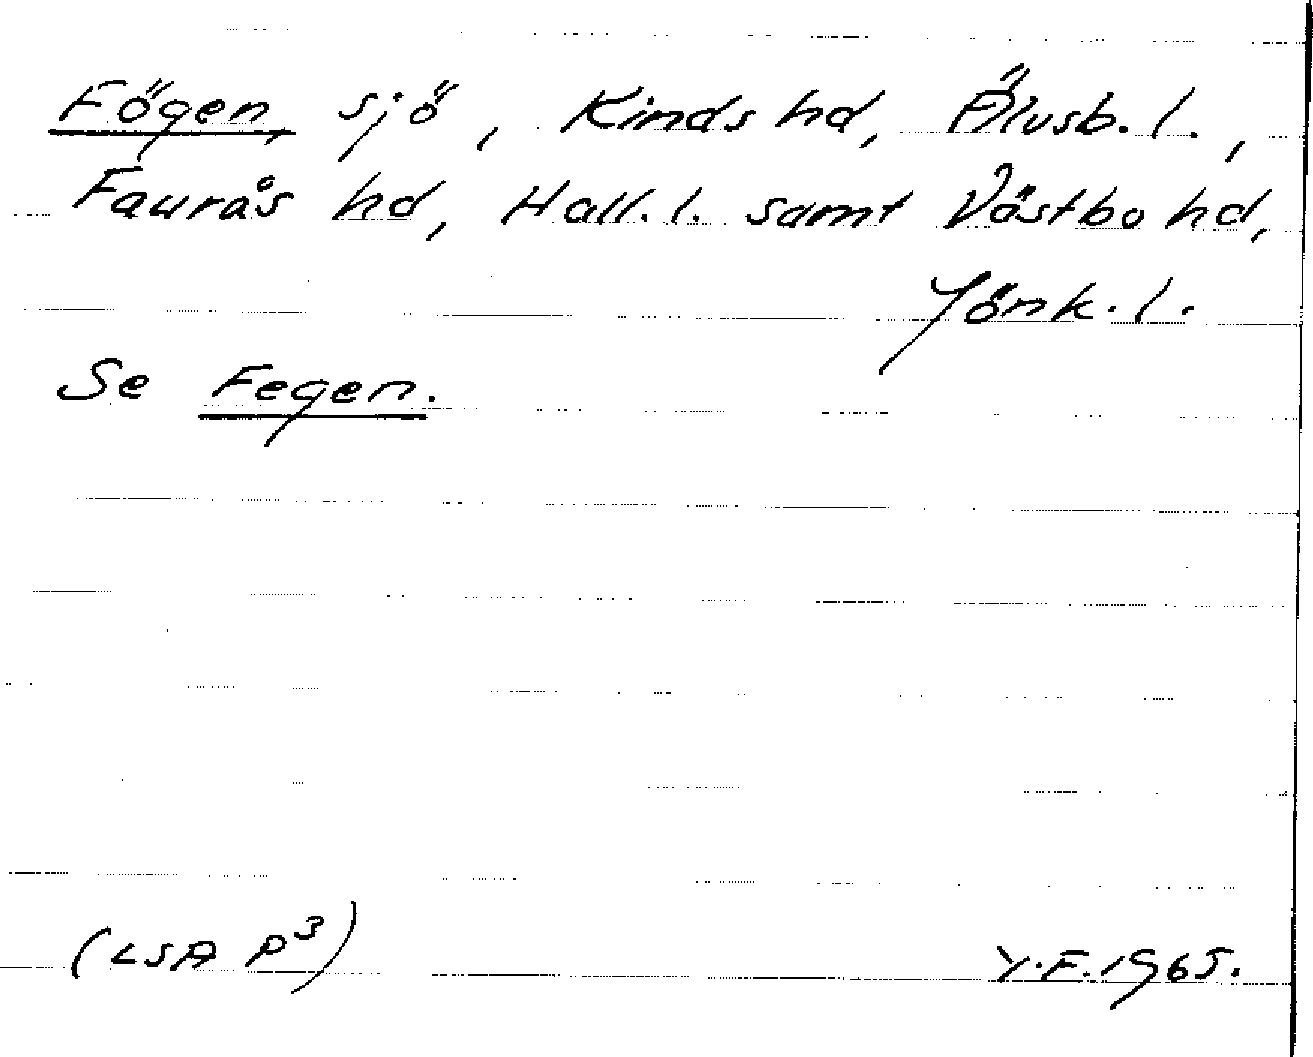 Fögen, sjö, Kinds hd, Älvsb. l.,
Faurås hd, Hall. l. samt Västbo hd,
Jönk. l.
Se Fegen.
(LSA P³)
Y.F. 1965.